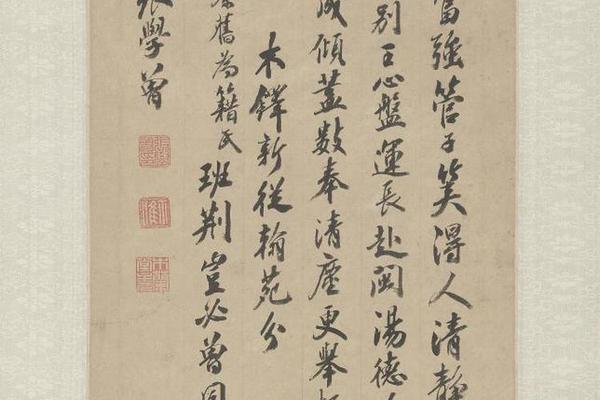 富強管子笑得人清靜
別王心盤運長赴閩湯德
成傾蓋數奉清塵更舉
木鐸新從翰苑分
舊為籍氏班荆豈必曾同
張學曾